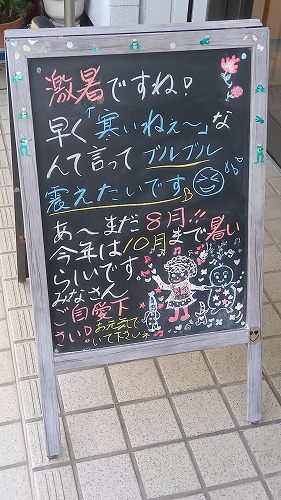 激暑ですね!
早く「寒いねぇ〜」な
んて言ってブルブル
震えたいです
あ〜まだ8月!!
今年は10月まで暑い
らしいです
みなさん
ご自愛下
さい!お元気で
いて下さいネ